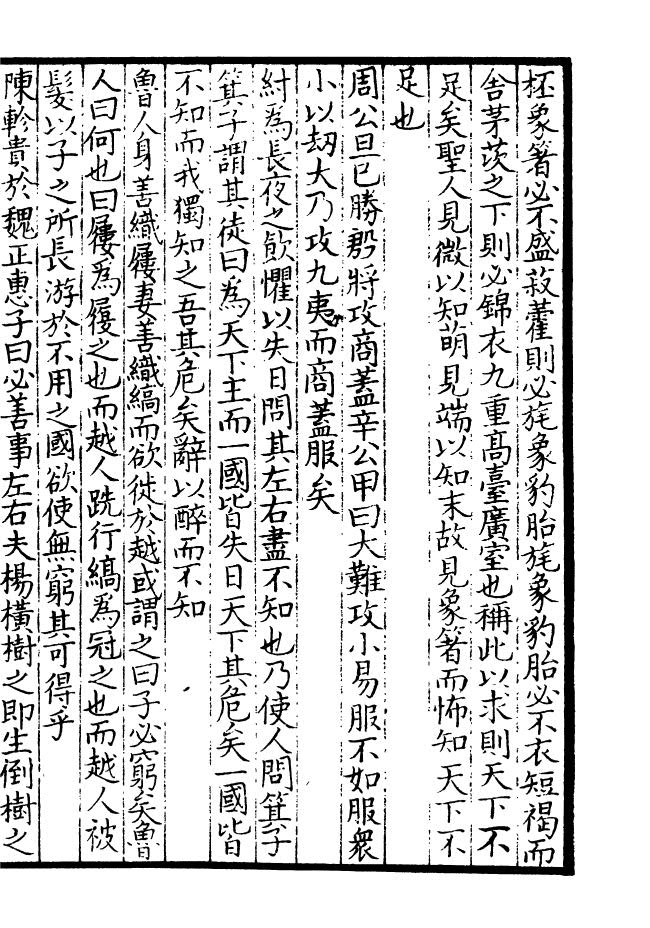 柸象箸必不盛菽藿則必旄象豹胎旄象豹胎必不衣短褐而
舍茅茨之下則必錦衣九重高臺廣室也稱此以求則天下不
足矣聖人見微以知萌見端以知末故見象箸而怖知天下不
足也
周公旦已勝殷將攻商蓋辛公甲曰大難攻小易服不如服衆
小以劫大乃攻九夷而商蓋服矣
紂為長夜之飲懼以失日問其左右盡不知也乃使人問箕子
箕子謂其徒曰為天下主而一國皆失日天下其危矣一國皆
不知而我獨知之吾其危矣辭以醉而不知
魯人身善織屨妻善織縞而欲徙於越或謂之曰子必窮矣魯
人曰何也曰屨為履之也而越人跣行縞為冠之也而越人被
髮以子之所長游於不用之國欲使無窮其可得乎
陳軫貴於魏王惠子曰必善事左右夫楊橫樹之即生倒樹之